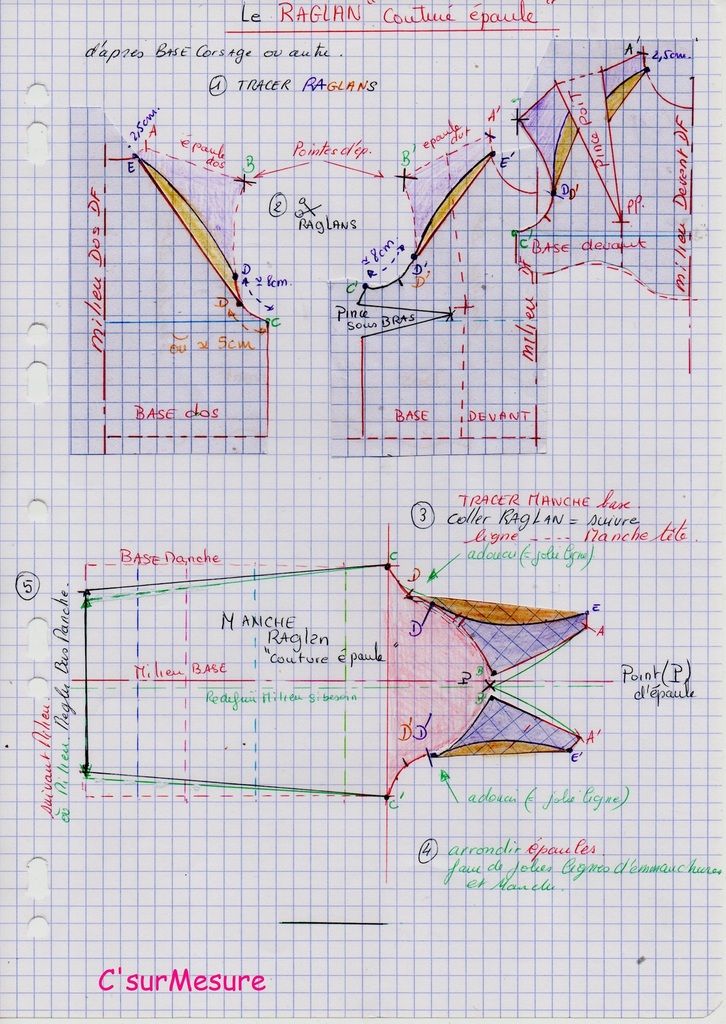 Le RAGLAN "couture épaule"
d'après BASE Corsage ou autre.
① TRACER RAGLANS
A' 2,5cm.
pince poit
D D'
PP.
C'
BASE devant
milieu Devant DF
2,5cm.
A
E
épaule dos
B
Pointes d'ép.
B'
épaule dvt
A'
E'
②
RAGLANS
milieu Dos DF
D
≃ 8cm.
D
C
ou ≃ 5cm
BASE dos
≃ 8cm.
C'
D'
D'
Pince sous BRAS
milieu DF
BASE DEVANT
③ TRACER MANCHE base.
coller RAGLAN = suivre
ligne ---- Manche tête.
adouci (= jolie ligne)
BASE Manche
C
D
D
E
A
⑤
MANCHE
Raglan
"couture épaule"
Milieu BASE
B
B'
Point (P)
d'épaule
suivant Milieu
D' D'
A'
E'
C'
adouci (= jolie ligne)
④ arrondir épaules.
de jolies lignes d'emmanchures
et Manche.
C'surMesure